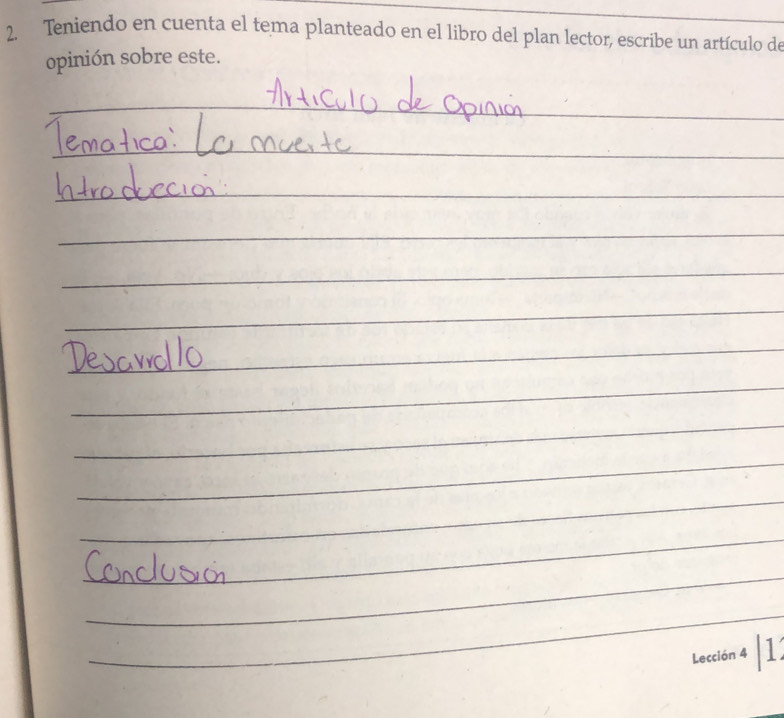 2. Teniendo en cuenta el tema planteado en el libro del plan lector, escribe un artículo de
opinión sobre este.
Articulo de opinion
Tematica: La muerte
Introduccion:
Desarrollo
Conclusion
Lección 4